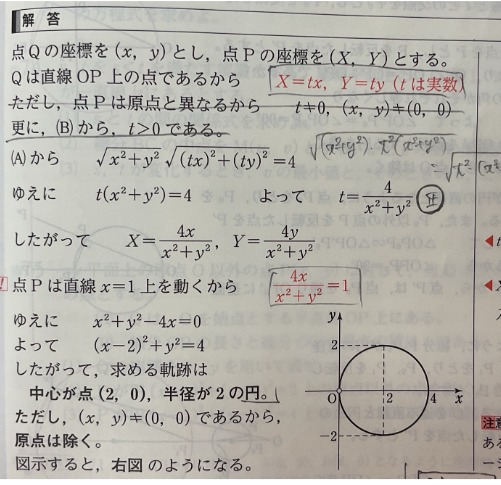 解 答
点Qの座標を (x, y) とし，点Pの座標を (X, Y) とする。
Qは直線OP上の点であるから X=tx, Y=ty (t は実数)
ただし，点Pは原点と異なるから t≠0, (x, y)≠(0, 0)
更に，(B)から，t>0 である。
(A)から √x²+y² √(tx)²+(ty)² =4
ゆえに t(x²+y²)=4 よって t=4/(x²+y²) 正
したがって X=4x/(x²+y²), Y=4y/(x²+y²)
点Pは直線 x=1 上を動くから 4x/(x²+y²)=1
ゆえに x²+y²−4x=0
よって (x−2)²+y²=4
したがって，求める軌跡は
中心が点(2, 0)，半径が2の円。
ただし，(x, y)≠(0, 0) であるから，
原点は除く。
図示すると，右図のようになる。
y
2
O
2
4
x
−2
注意